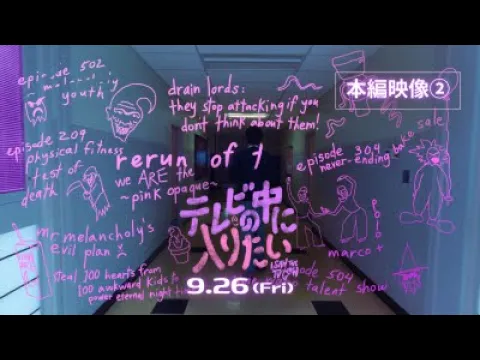 本編映像②
episode 502
youth
drain lords:
they stop attacking if you
don't think about them!
bake sale
episode 209
physical fitness
test of
death
rerun of t
we ARE the
~pink opaque~
episode 304
never-ending
テレビの中に
入りたい
I SAW THE
TV GLOW
9.26(Fri)
mr melancholy's
evil plan
steal 100 hearts from
100 awkward kids to
power eternal night
marco +
episode 504
talent show